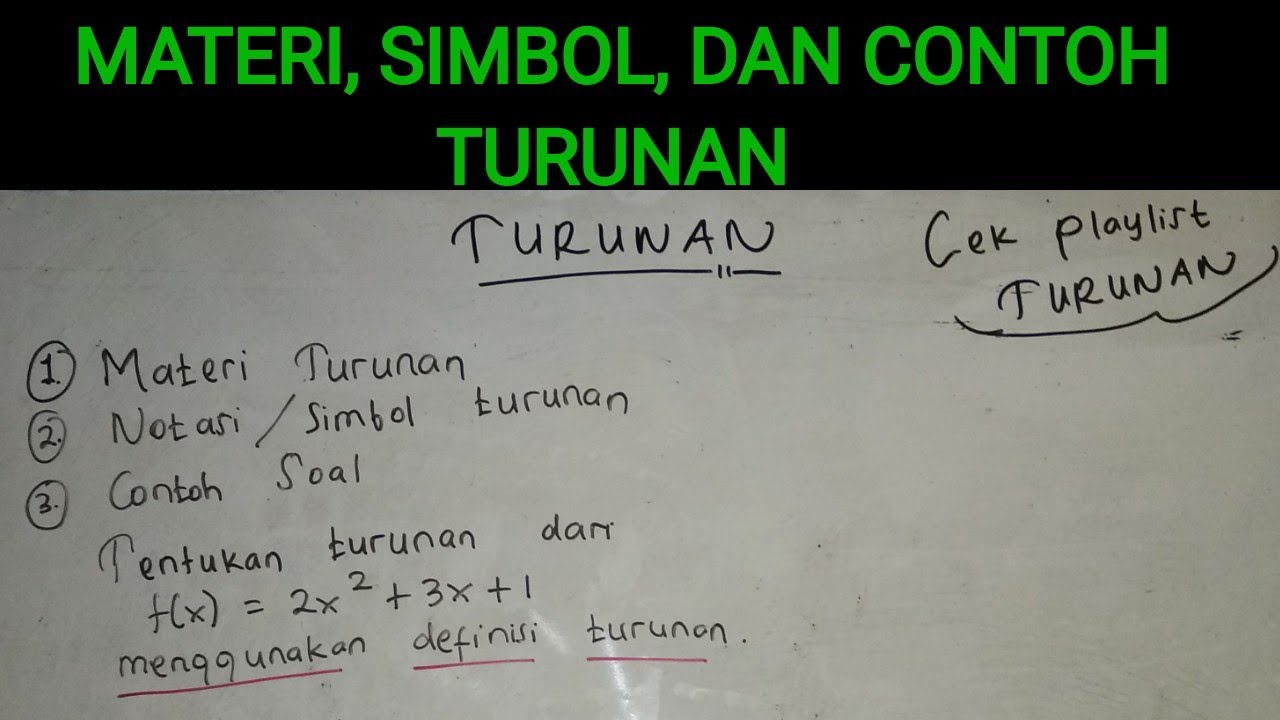 MATERI, SIMBOL, DAN CONTOH
TURUNAN
TURUNAN
Cek playlist
TURUNAN
1. Materi Turunan
2. Notasi / Simbol turunan
3. Contoh Soal
Tentukan turunan dari
f(x) = 2x² + 3x + 1
menggunakan definisi turunan.